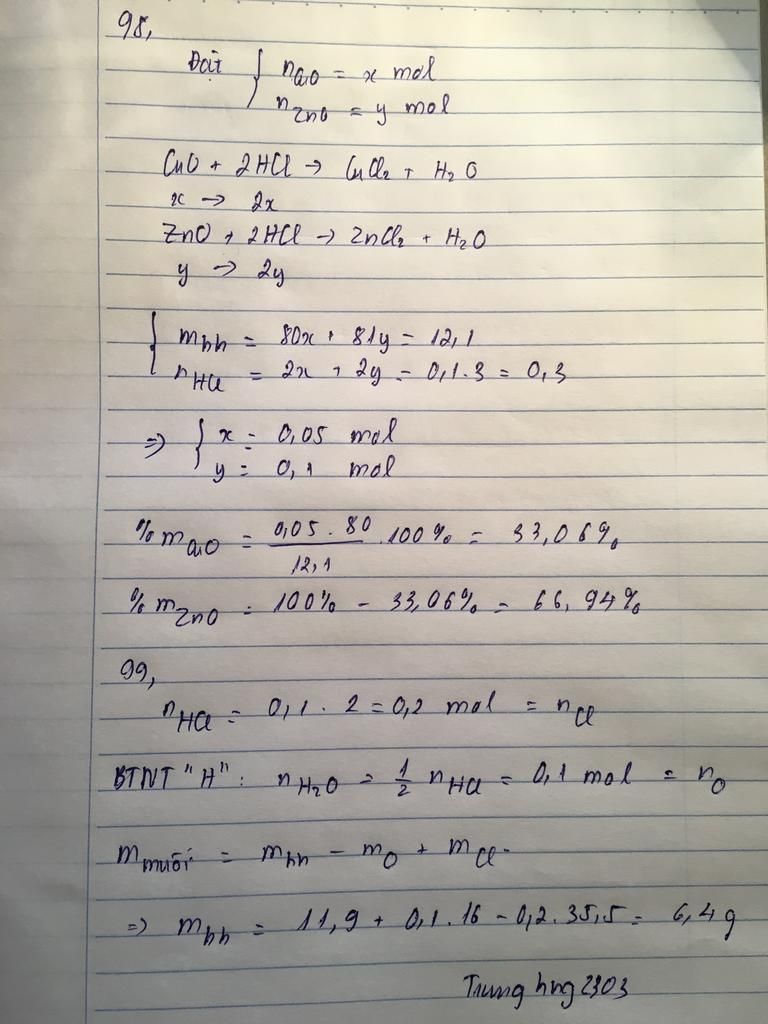 98,
Đặt { nCuO = x mol
nZnO = y mol
CuO + 2HCl → CuCl2 + H2O
x → 2x
ZnO + 2HCl → ZnCl2 + H2O
y → 2y
{ mhh = 80x + 81y = 12,1
nHCl = 2x + 2y = 0,1.3 = 0,3
=> { x = 0,05 mol
y = 0,1 mol
%mCuO = 0,05.80/12,1 .100% = 33,06%
%mZnO = 100% - 33,06% = 66,94%
99,
nHCl = 0,1 . 2 = 0,2 mol = nCl
BTNT "H": nH2O = 1/2 nHCl = 0,1 mol = nO
mmuối = mhh - mO + mCl-
=> mhh = 11,9 + 0,1.16 - 0,2.35,5 = 6,4g
Trung hng2303